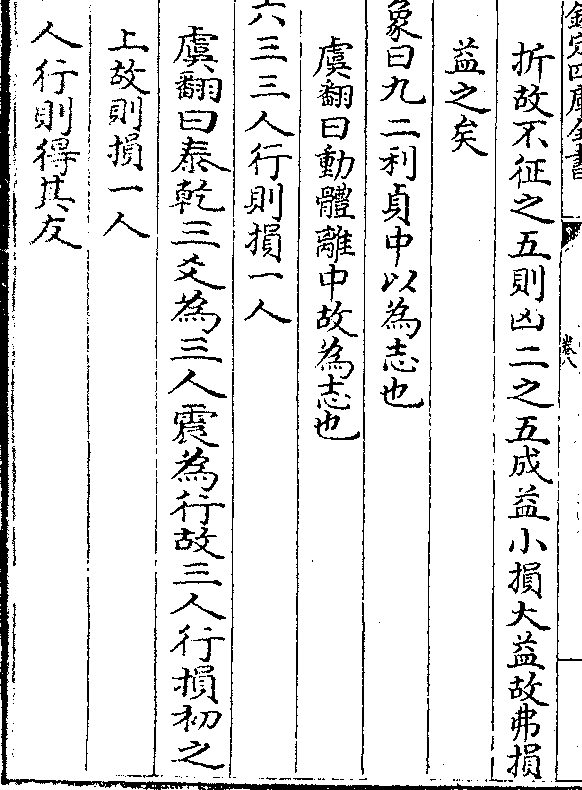 欽定四庫全書
卷八
折故不征之五則凶二之五成益小損大益故弗損
益之矣
象曰九二利貞中以為志也
虞翻曰動體離中故為志也
六三三人行則損一人
虞翻曰泰乾三爻為三人震為行故三人行損初之
上故則損一人
人行則得其友